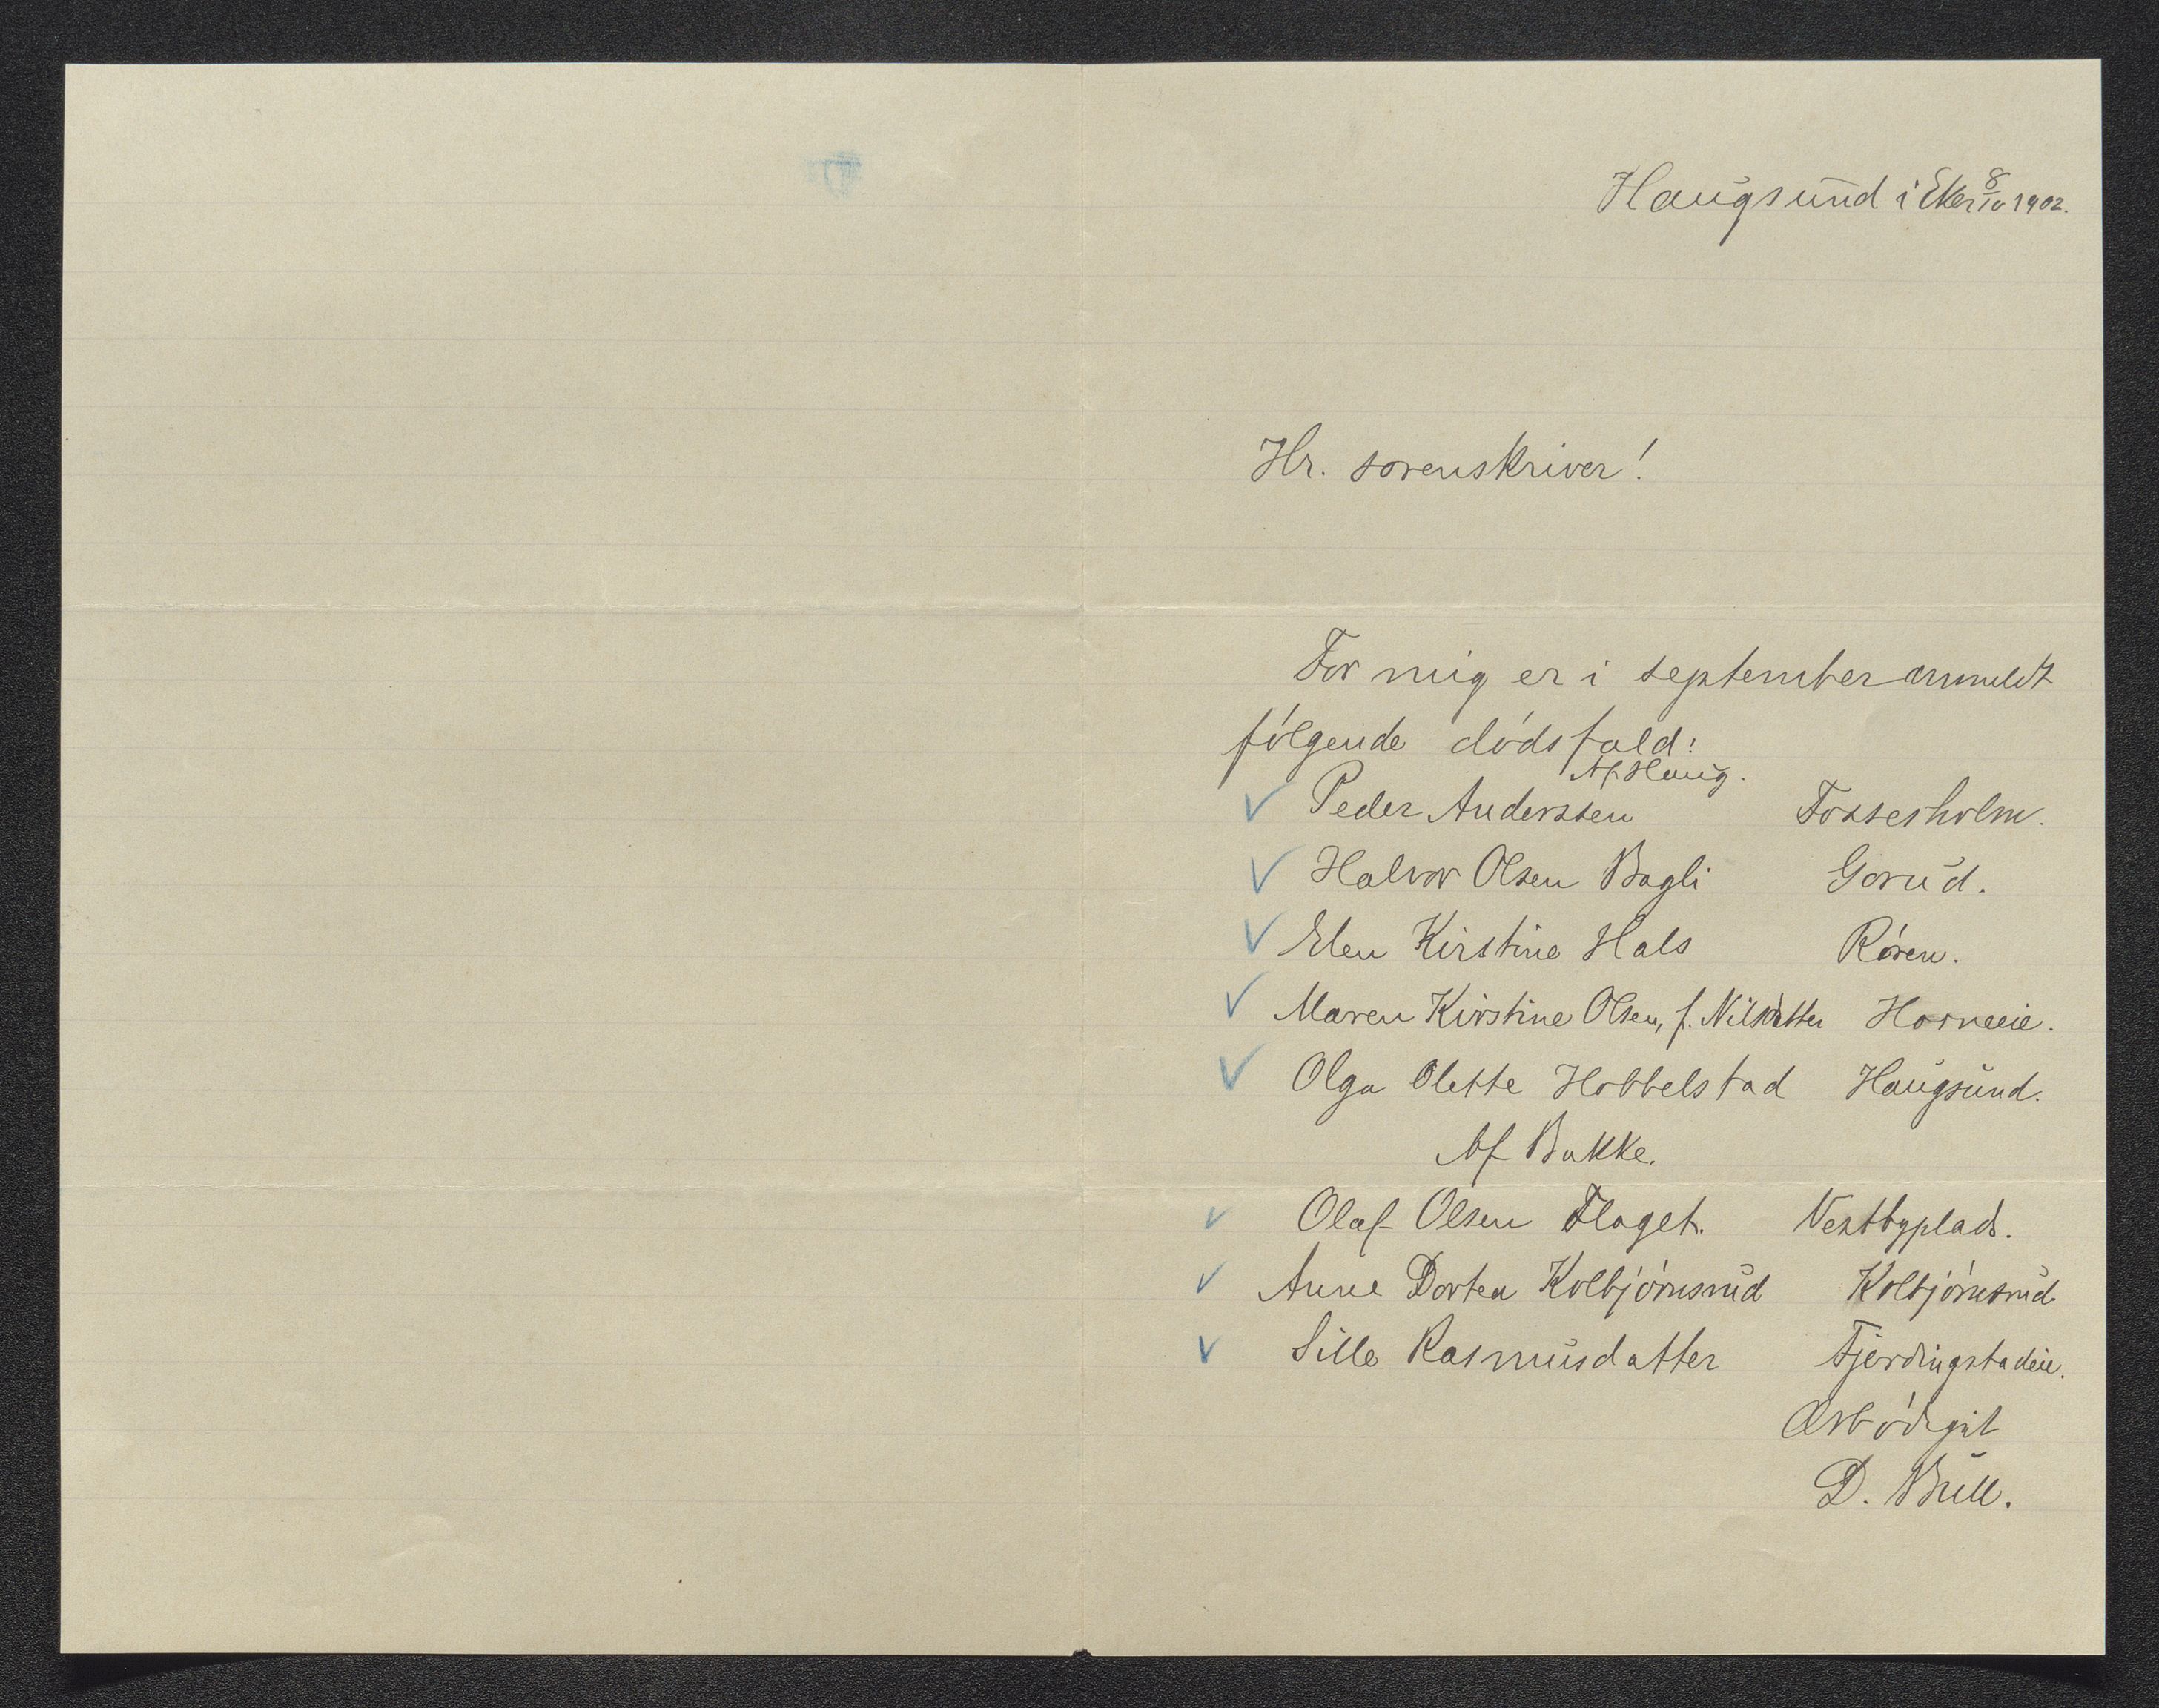 Haugsund i Eker 8/10 1902.
Hr. sorenskriver!
For mig er i september anmeldt
følgende dødsfald:
Af Haug.
✓ Peder Anderssen Fossesholm.
✓ Halvor Olsen Bagli Gorud.
✓ Elen Kirstine Hals Røren.
✓ Maren Kirstine Olsen, f. Nilsdatter Horneeie.
✓ Olga Olette Hobbelstad Haugsund.
Af Bakke.
✓ Olaf Olsen Flaget. Vestbyplads.
✓ Anne Dortea Kolbjørnsrud Kolbjørnsrud
✓ Sille Rasmusdatter Fjerdingstadeie.
Ærbødigst
D. Bull.